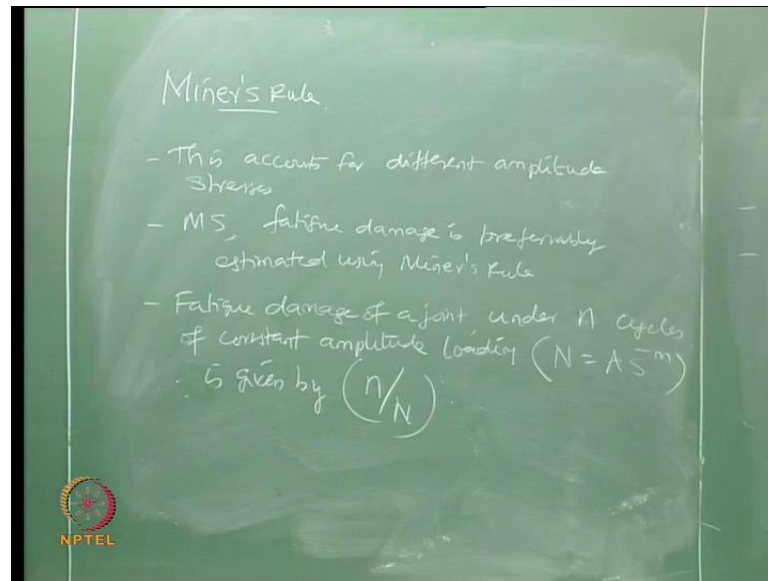 Miner's Rule
- This accounts for different amplitude
stresses
- MS, fatigue damage is preferrably
estimated using Miner's Rule
- Fatigue damage of a joint under n cycles
of constant amplitude loading (N = A S^-m)
is given by (n/N)
NPTEL